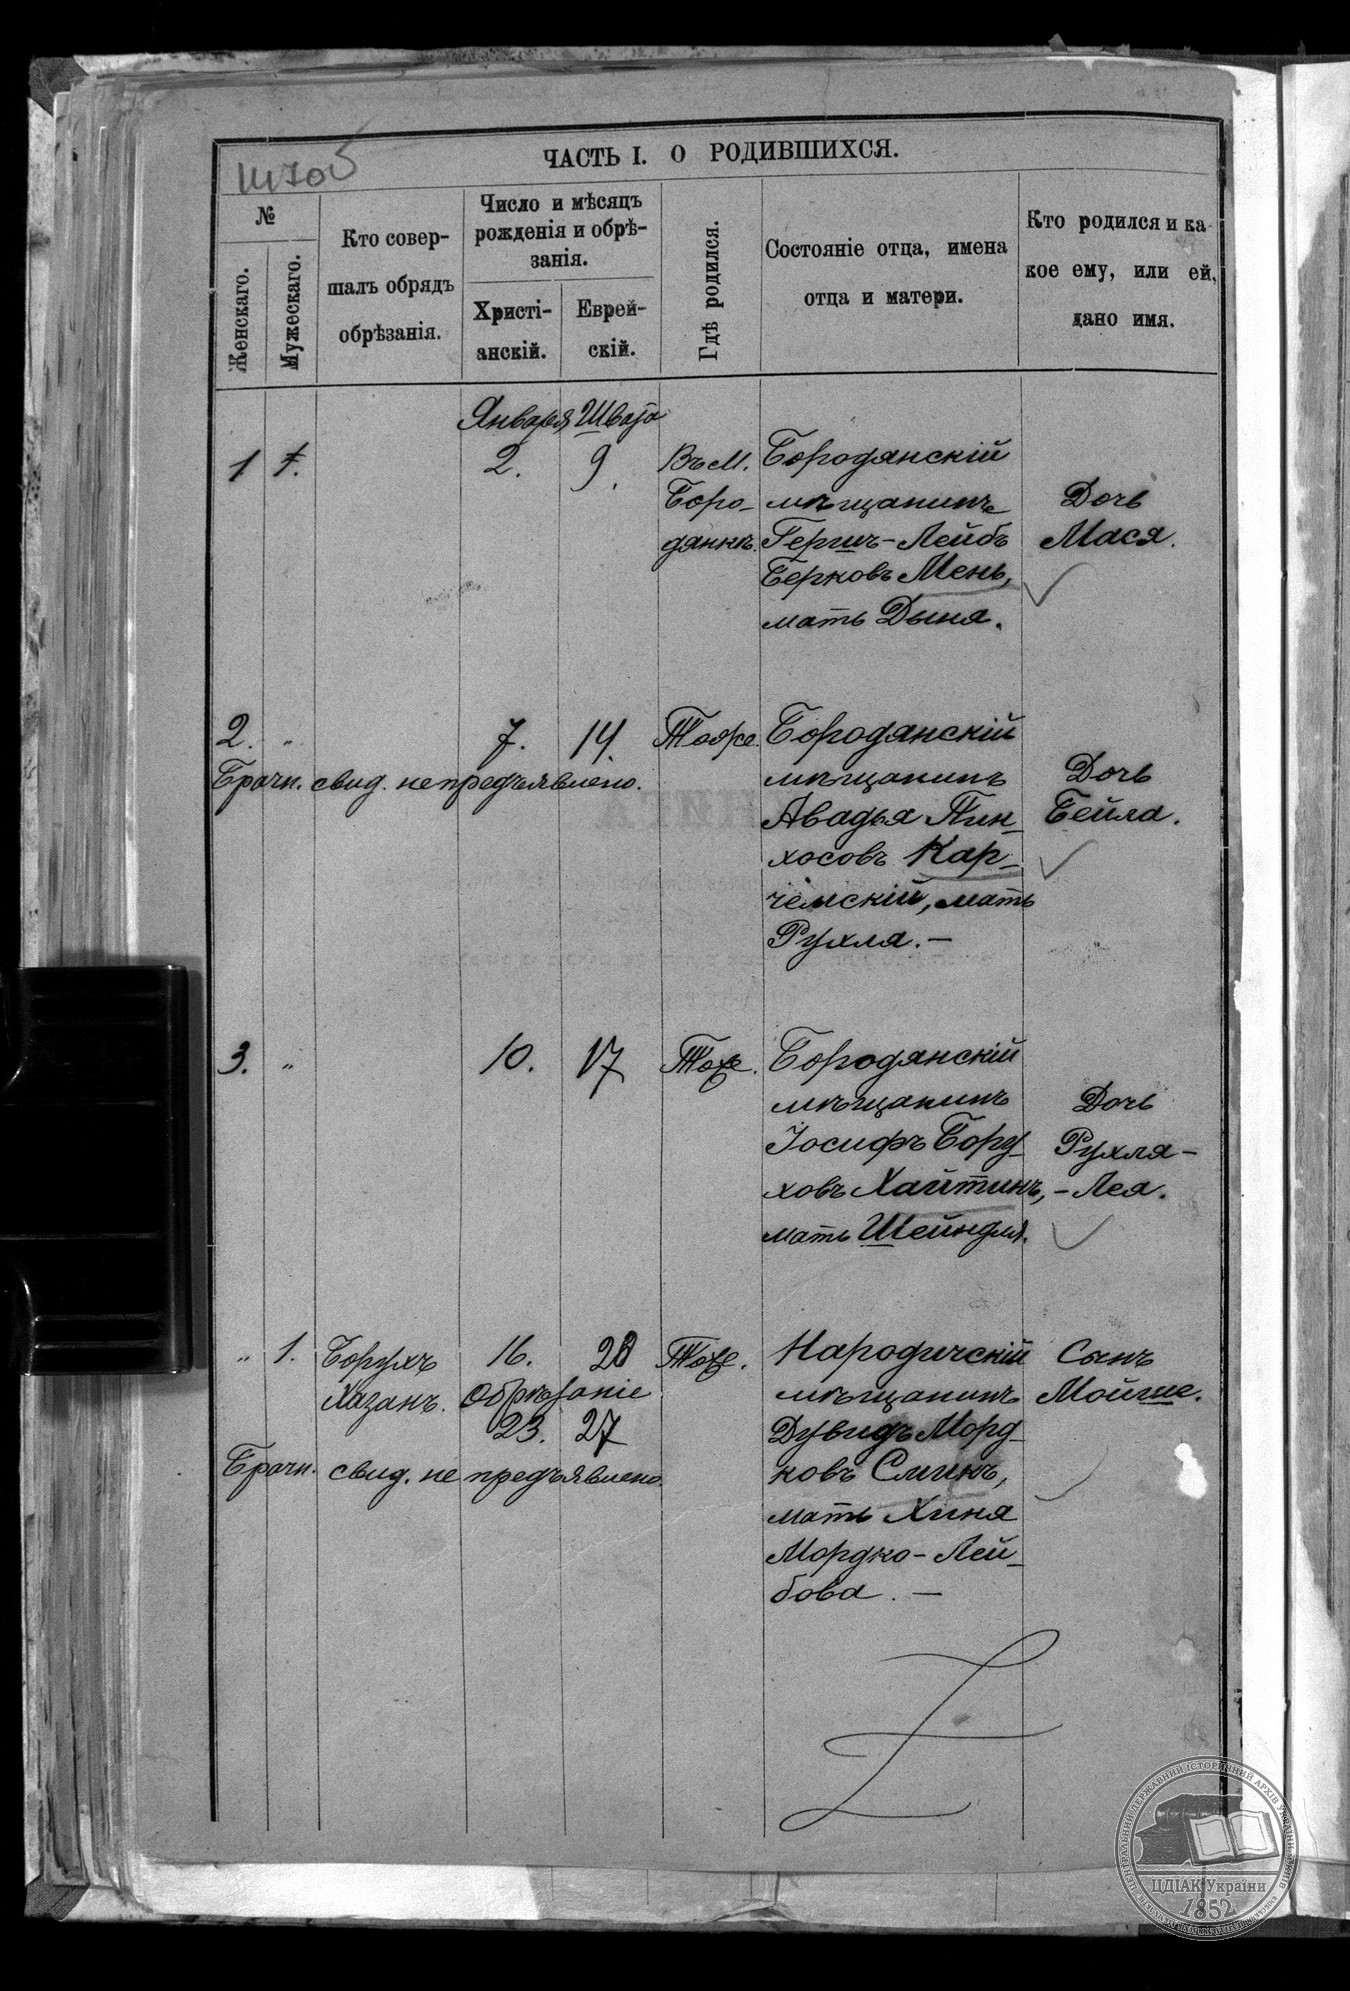 ЧАСТЬ I. О РОДИВШИХСЯ.
№
Женскаго.
Мужескаго.
Кто совер-
шалъ обрядъ
обрѣзанія.
Число и мѣсяцъ
рожденія и обрѣ-
занія.
Христі-
анскій.
Еврей-
скій.
Гдѣ родился.
Состояніе отца, имена
отца и матери.
Кто родился и ка
кое ему, или ей,
дано имя.
Января Швата
1
2.
9.
Въ м.
Боро-
дянкѣ.
Бородянскій
мѣщанинъ
Гершъ-Лейбъ
Берковъ Мень,
мать Дыня.
Дочь
Мася.
2. „
7.
14.
Тоже.
Брачн. свид. не предъявлено.
Бородянскій
мѣщанинъ
Авадья Пин-
хосовъ Кар-
чемскій, мать
Рухля. —
Дочь
Бейла.
3. „
10.
17
Тоже.
Бородянскій
мѣщанинъ
Іосифъ Бору-
ховъ Хайтинъ,
мать Шейндля.
Дочь
Рухля-
-Лея.
„ 1.
Борухъ
Хазанъ.
16.
20
Обрѣзаніе
23. 27
Тоже.
Брачн. свид. не предъявлено.
Народичскій
мѣщанинъ
Дувидъ Морд-
ковъ Сликъ,
мать Хиня
Мордко-Лей-
бова. —
Сынъ
Мойше.
ЦДІАК України
1852